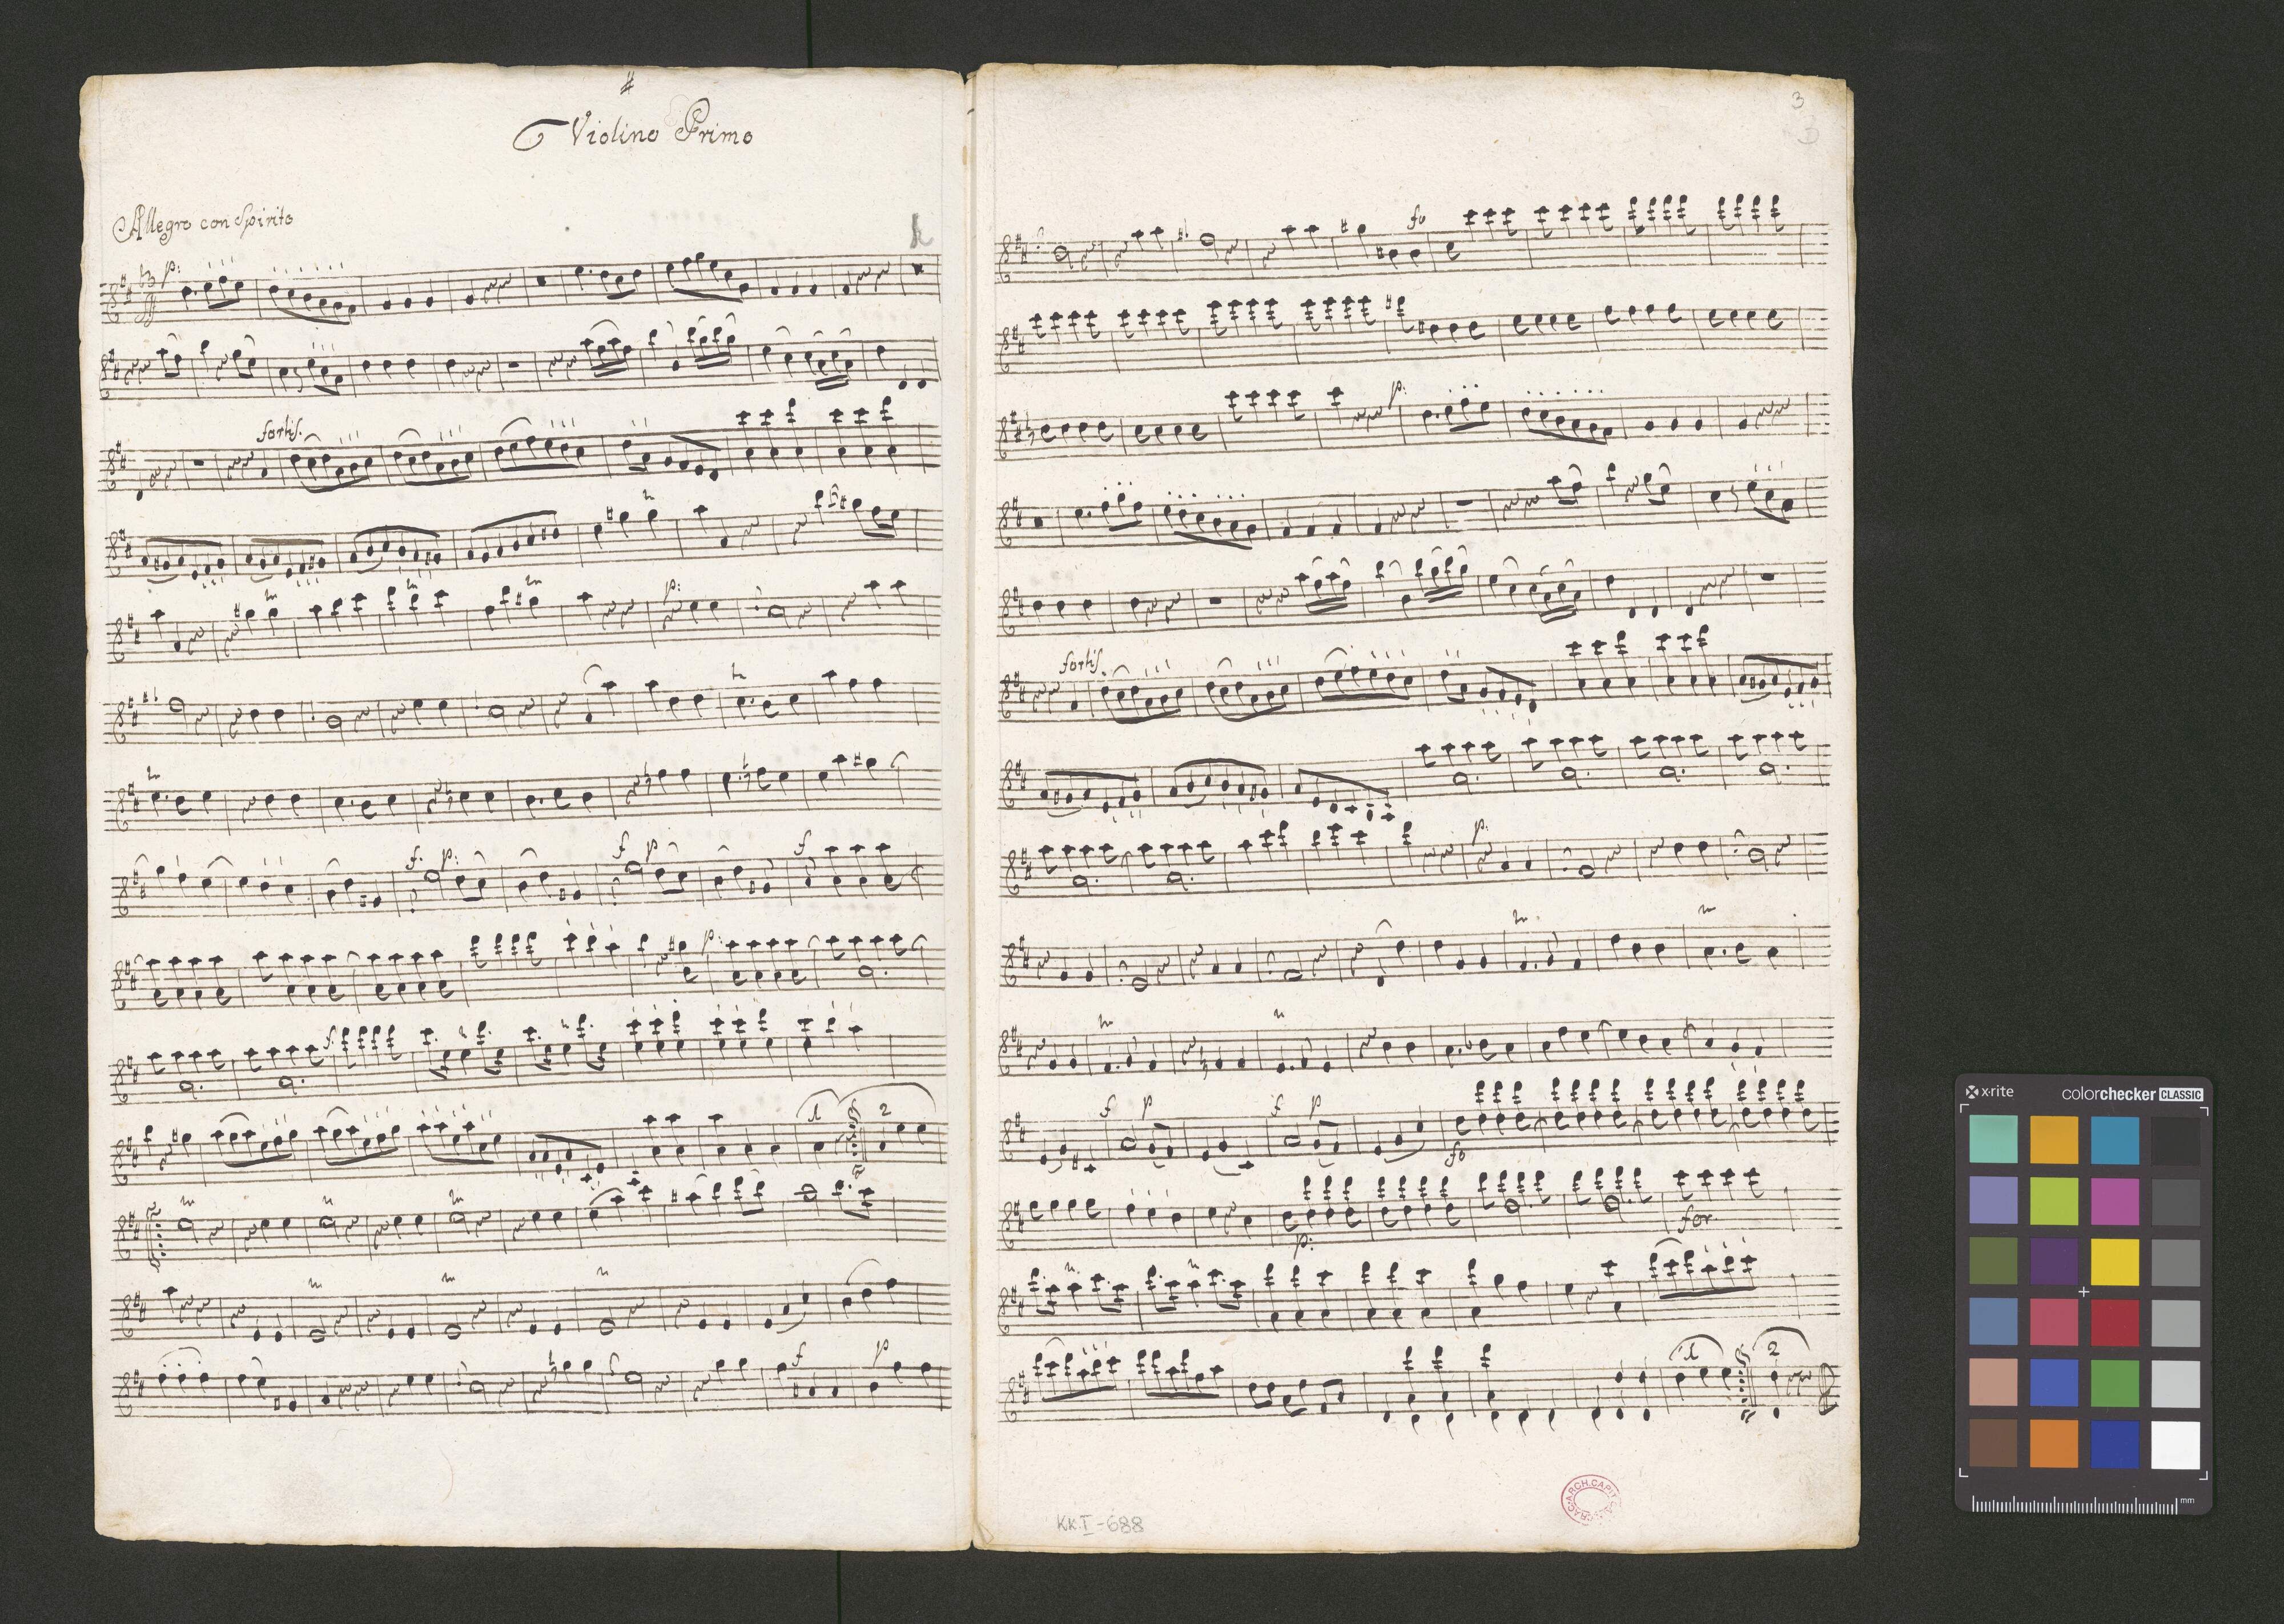 Violino Primo
Allegro con Spirito
p:
fortis.
p:
f. p: f p f
p:
f
1 2
f p
3
3
fo
p:
fortis.
p:
f p f p
fo
p: for.
1 2
KK.I-688
ARCH.CAPIT
x-rite colorchecker CLASSIC
mm